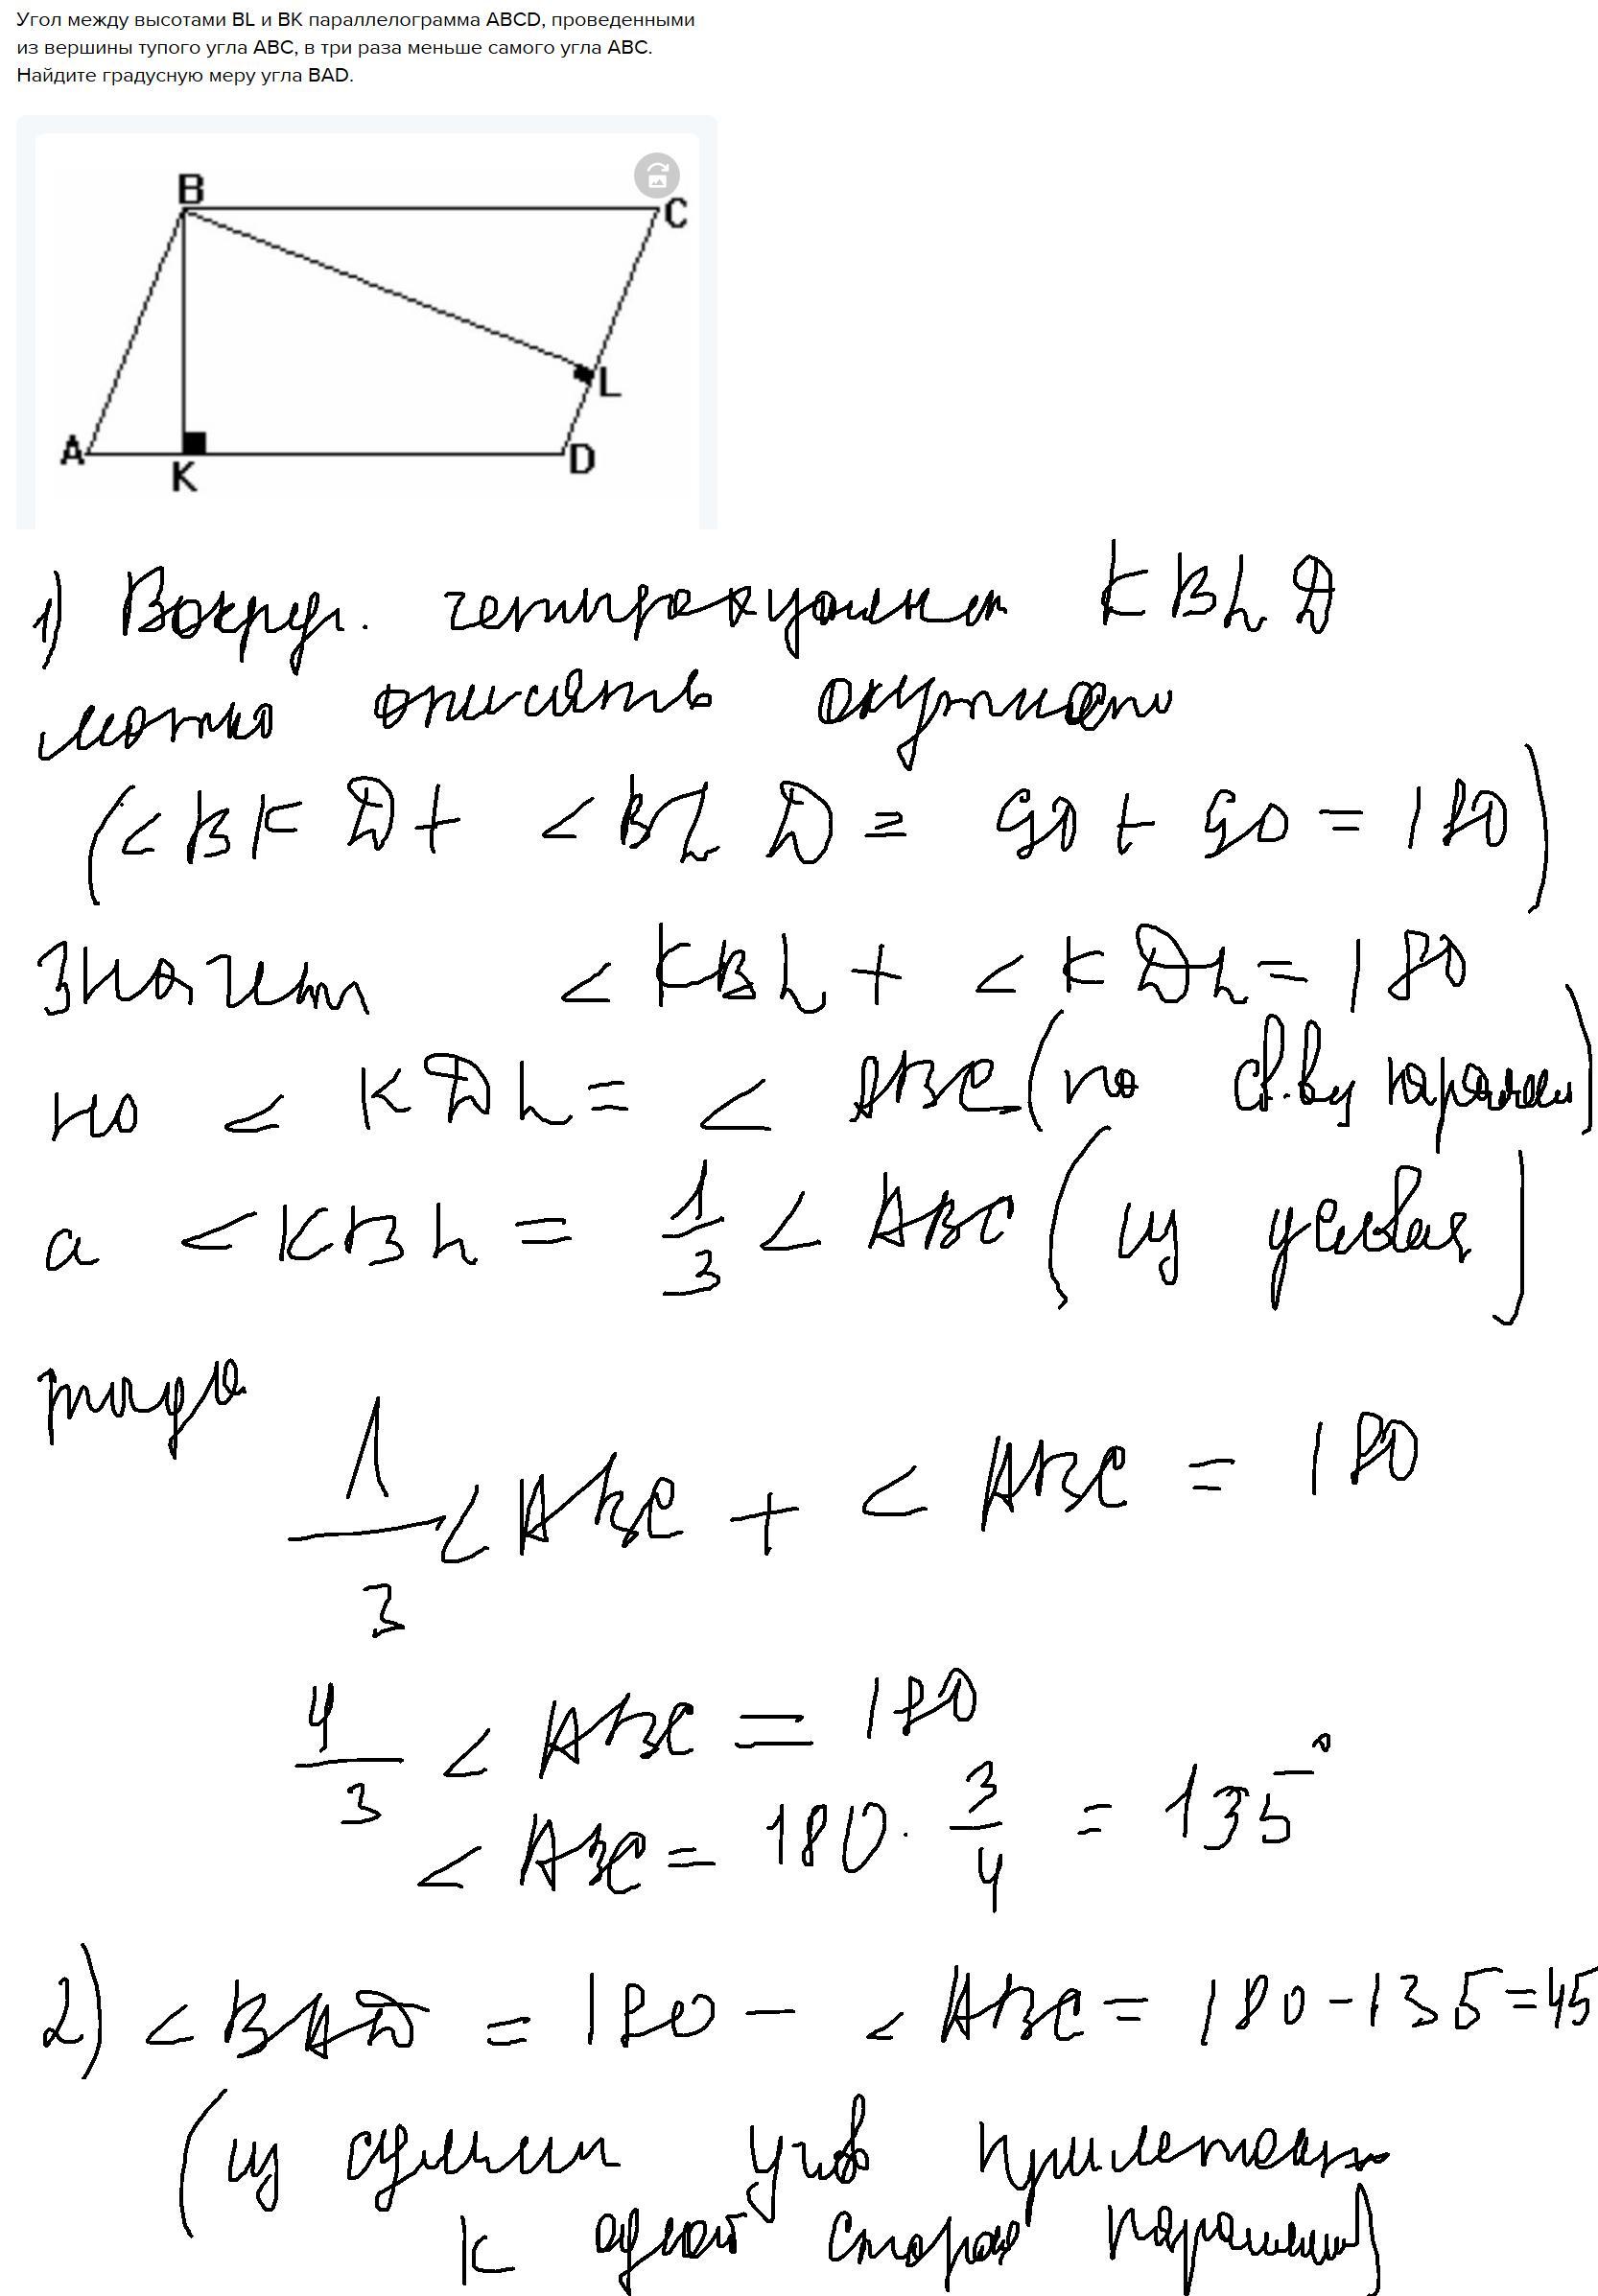 Угол между высотами BL и BK параллелограмма ABCD, проведенными
из вершины тупого угла ABC, в три раза меньше самого угла ABC.
Найдите градусную меру угла BAD.
B
C
L
A
D
K
1) Вокруг. четырехугольнка KBLD
можно описать окружность
(<BKD + <BLD = 90 + 90 = 180)
Значит <KBL + <KDL = 180
но <KDL = <ABC (по св.ву паралл)
а <KBL = 1/3 <ABC (из условия)
тогда
1/3 <ABC + <ABC = 180
4/3 <ABC = 180
<ABC = 180 · 3/4 = 135°
2) <BAD = 180 - <ABC = 180 - 135 = 45
(из суммы углов прилежащ
к одной стороне паралл)